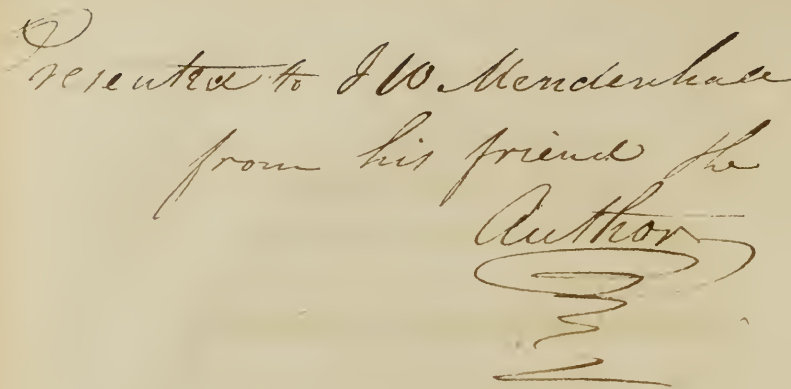 Presented to J W. Mendenhall
from his friend the
Author